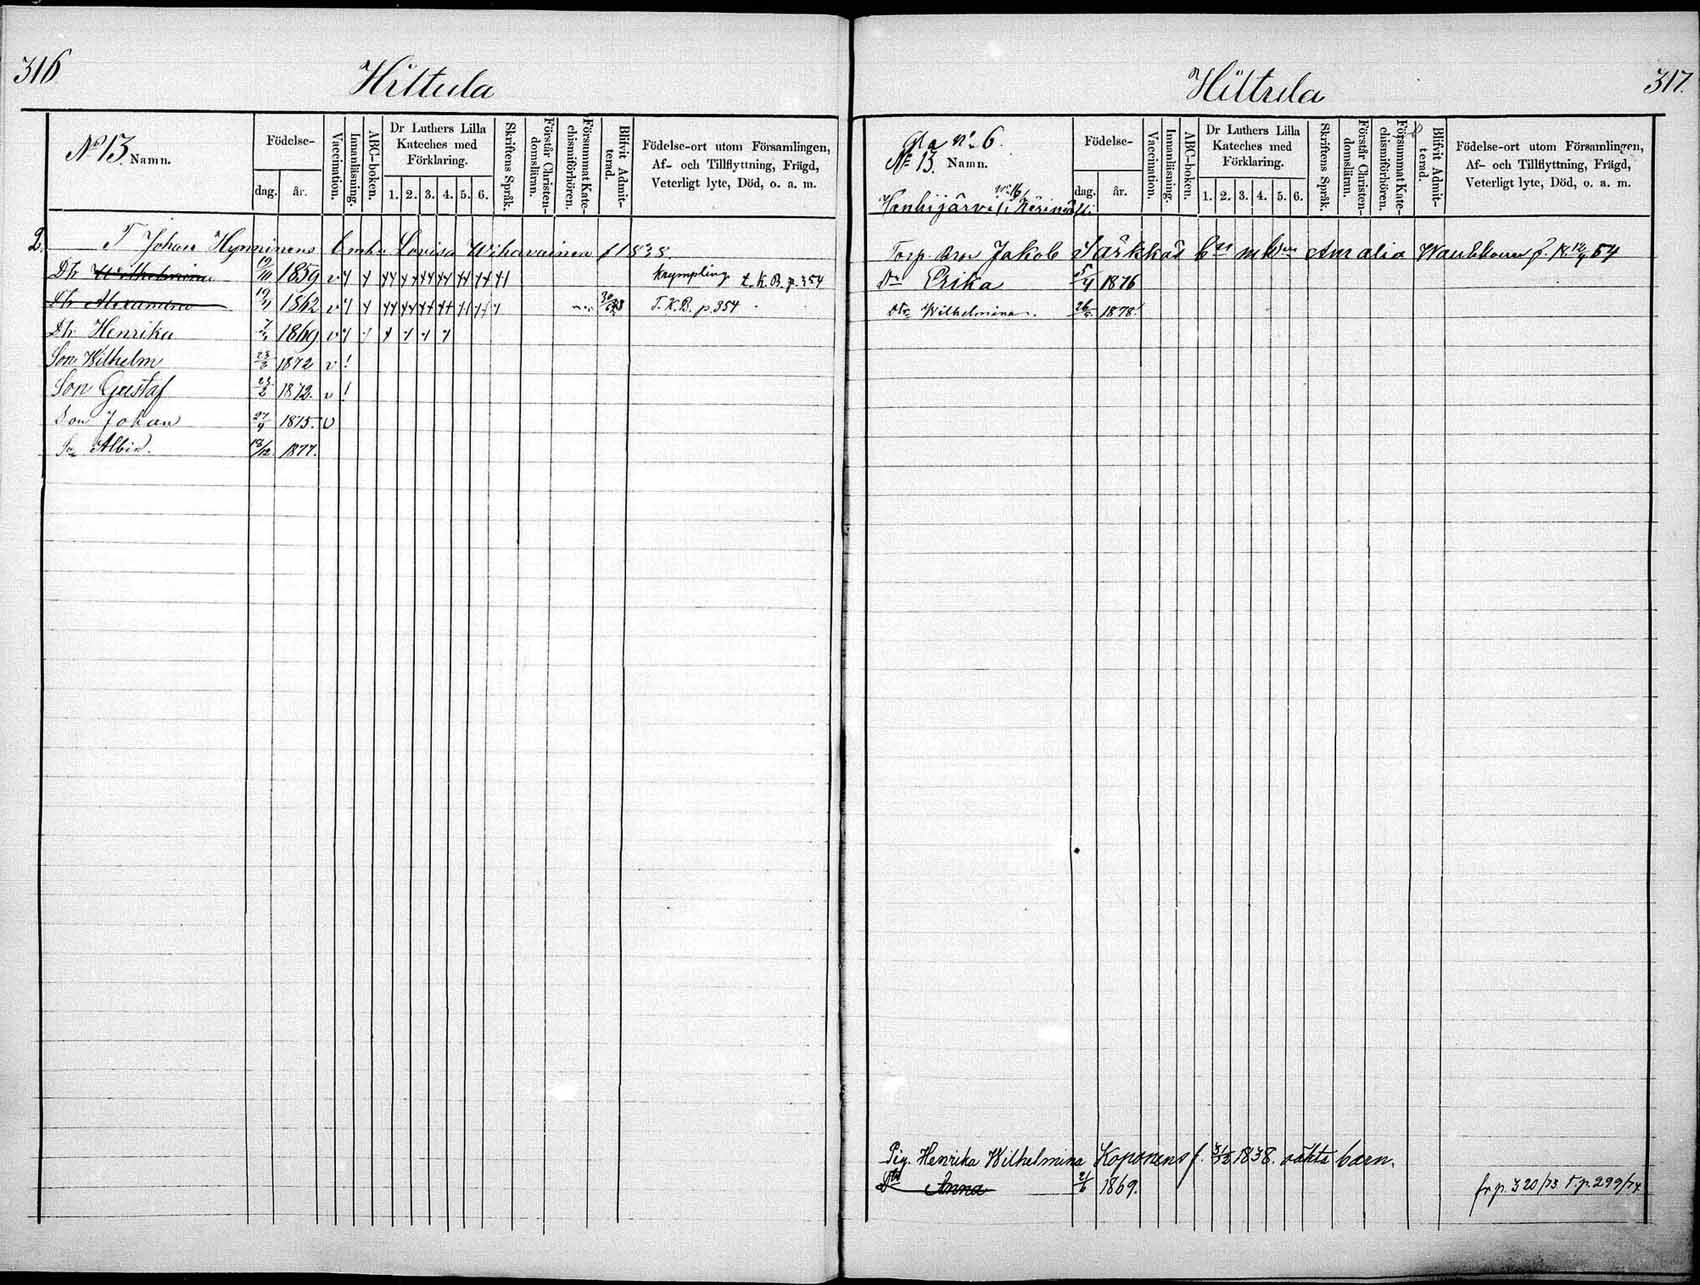 316.
Hiltula
No 13. Namn.
Födelse-
dag. år.
Vaccination.
Innanläsning.
ABC-boken.
Dr Luthers Lilla Kateches med Förklaring.
1. 2. 3. 4. 5. 6.
Skriftens Språk.
Förstår Christendomslärn.
Försummat Katechismiförhören.
Blifvit Admitterad.
Födelse-ort utom Församlingen, Af- och Tillflyttning, Frägd, Veterligt lyte, Död, o. a. m.
2. T. Johan Hynninens Enka Lovisa Wihavainen f 1838.
Dtr Wilhelmina 19/10 1859 v krympling t. K. B. p. 354
Dtr Alexandra 1862 v T. K. B. p. 354
Dtr Henrika 1869 v
Son Wilhelm 23/2 1872 v !
Son Gustaf 23/2 1872. v !
Son Johan 27/9 1875. v
Son Albin. 13/12 1877.
317.
Hiltula
No 6.
No 13. Namn.
Hanhijärvi No 16
Födelse-
dag. år.
Vaccination.
Innanläsning.
ABC-boken.
Dr Luthers Lilla Kateches med Förklaring.
1. 2. 3. 4. 5. 6.
Skriftens Språk.
Förstår Christendomslärn.
Försummat Katechismiförhören.
Blifvit Admitterad.
Födelse-ort utom Församlingen, Af- och Tillflyttning, Frägd, Veterligt lyte, Död, o. a. m.
Torp. Bror Jakob Särkkäs Amalia f. 54
Dr Erika 25/4 1876
Dtr Wilhelmina. 26/5 1878.
Pig. Henrika Wilhelmina Koponens f. 3/12 1838. oäkta barn.
Dtr Anna 2/6 1869. fr p. 320/73 T. p. 299/74